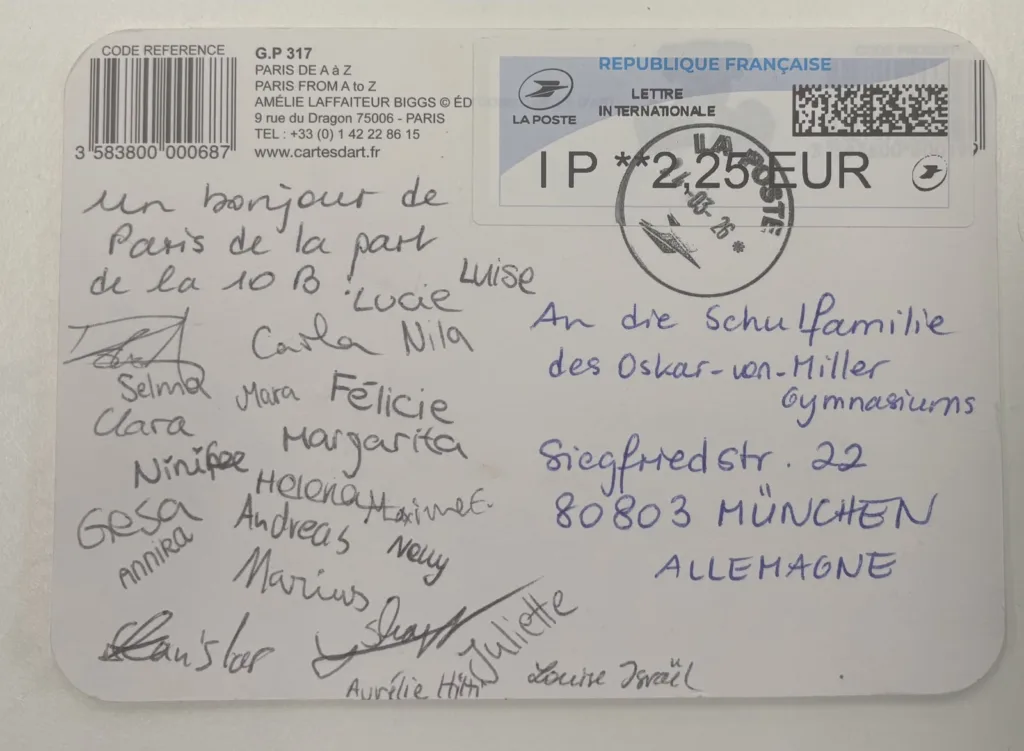 CODE REFERENCE
3 583800 000687
G.P 317
PARIS DE A à Z
PARIS FROM A to Z
AMÉLIE LAFFAITEUR BIGGS © ÉD
9 rue du Dragon 75006 - PARIS
TEL : +33 (0) 1 42 22 86 15
www.cartesdart.fr
REPUBLIQUE FRANÇAISE
LA POSTE
LETTRE
INTERNATIONALE
IP **2,25 EUR
LA POSTE
03-26
un bonjour de
Paris de la part
de la 10 B !
Luise
Lucie
Carla Nila
Selma Mara Félicie
Clara
Margarita
Helena
Gesa Andreas
ANNIKA
Marius
Juliette
Aurélie Hitti
Louise Israël
An die Schulfamilie
des Oskar-von-Miller
Gymnasiums
Siegfriedstr. 22
80803 MÜNCHEN
ALLEMAGNE